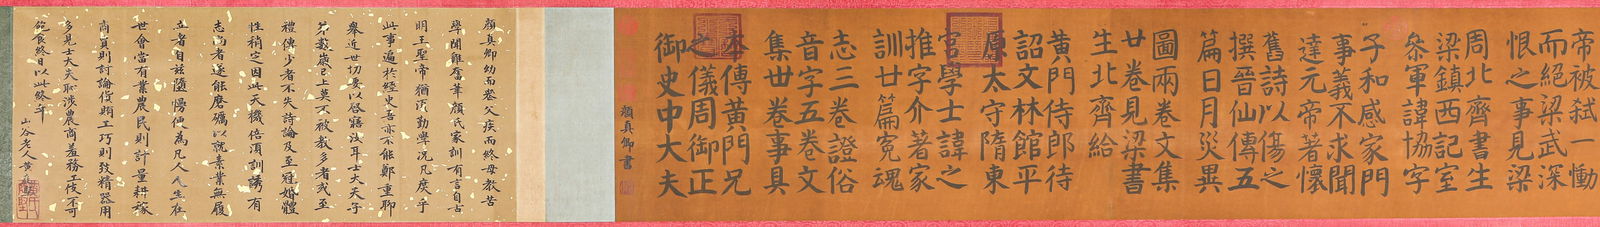 帝被弑一慟
而絕梁武深
恨之事見梁
周北齊書生
梁鎮西記室
叅軍諱協字
子和感家門
事義不求聞
達元帝著懷
舊詩以傷之
撰晉仙傳五
篇日月災異
圖兩卷文集
廿卷見梁書
生北齊給
黃門侍郎待
詔文林館平
原太守隋東
宮學士諱之
推字介著家
訓廿篇冤魂
志三卷證俗
音字五卷文
集世卷事具
本傳黃門兄
之儀周御正
御史中大夫
顏真卿書
顏真卿幼而喪父疾而終母教苦
學聞雖奮筆顏氏家訓有言自古
明王聖帝猶須勤學況凡庶乎
此事遍於經史吾亦不能鄭重聊
舉近世切要以啟寤汝耳士大夫子
弟數歲已上莫不被教多者或至
禮傳少者不失詩論及至冠婚體
性稍定因此天機倍須訓誘有
志尚者遂能磨礪以就素業無履
立者自茲隨慢便為凡人人生在
世會當有業農民則計量耕稼
商賈則討論貨賄工巧則致精器用
多見士大夫恥涉農商羞務工伎不可
飽食終日以此終年
山谷老人黃